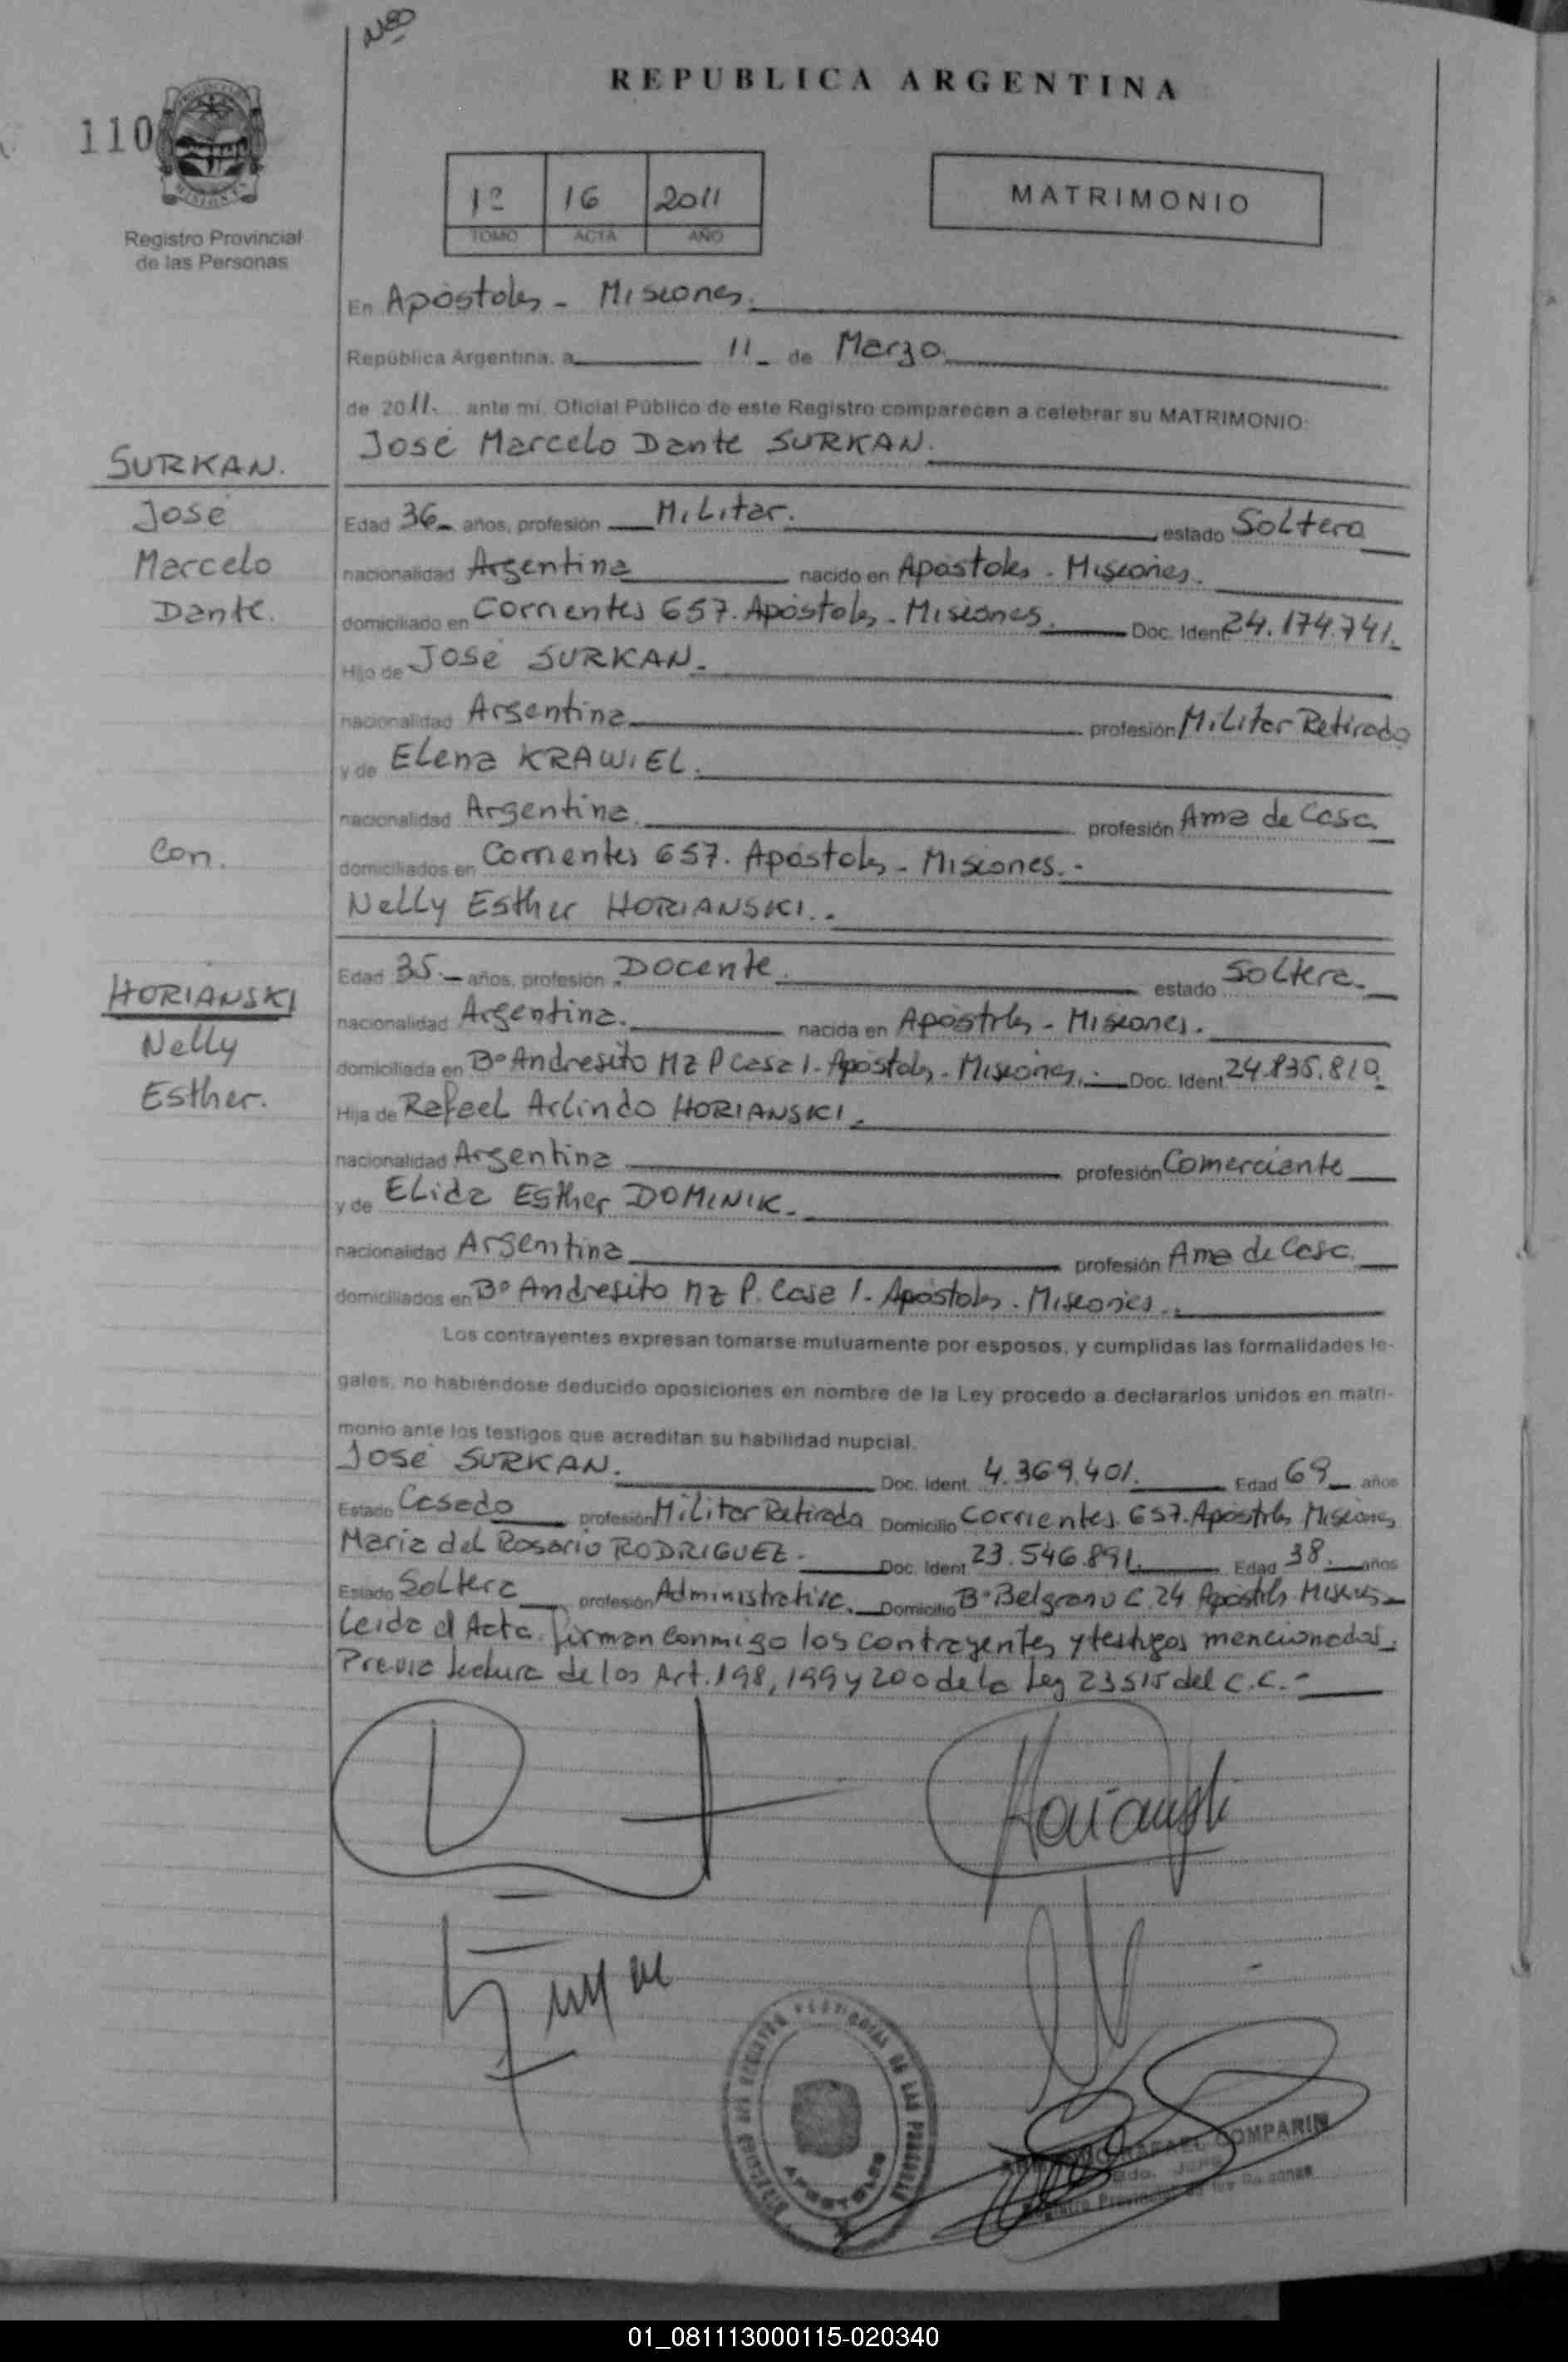 REPUBLICA ARGENTINA
110
1º 16 2011
TOMO ACTA AÑO
MATRIMONIO
Registro Provincial
de las Personas
En Apóstoles - Misiones.
República Argentina, a 11 de Marzo.
de 2011. ante mí, Oficial Público de este Registro comparecen a celebrar su MATRIMONIO:
José Marcelo Dante SURKAN.
SURKAN.
José
Marcelo
Dante.
Edad 36 años, profesión Militar. estado Soltero
nacionalidad Argentina nacido en Apóstoles - Misiones.
domiciliado en Corrientes 657. Apóstoles - Misiones. Doc. Ident. 24.174.741.
Hijo de José SURKAN.
nacionalidad Argentina profesión Militar Retirado
y de Elena KRAWIEL.
nacionalidad Argentina. profesión Ama de Casa
Con.
domiciliados en Corrientes 657. Apóstoles - Misiones.-
Nelly Esther HORIANSKI.
HORIANSKI
Nelly
Esther.
Edad 35.- años, profesión Docente. estado Soltera.
nacionalidad Argentina. nacida en Apóstoles - Misiones.
domiciliada en Bº Andresito Mz P Casa 1 - Apóstoles - Misiones. Doc. Ident. 24.835.810.
Hija de Rafael Arlindo HORIANSKI.
nacionalidad Argentina profesión Comerciante
y de Elida Esther DOMINIK.
nacionalidad Argentina profesión Ama de Casa.
domiciliados en Bº Andresito Mz P. Casa 1 - Apóstoles - Misiones.
Los contrayentes expresan tomarse mutuamente por esposos, y cumplidas las formalidades le-
gales, no habiéndose deducido oposiciones en nombre de la Ley procedo a declararlos unidos en matri-
monio ante los testigos que acreditan su habilidad nupcial.
José SURKAN. Doc. Ident. 4.369.401. Edad 69 años
Estado Casado profesión Militar Retirado Domicilio Corrientes 657. Apóstoles Misiones
María del Rosario RODRIGUEZ. Doc. Ident. 23.546.891. Edad 38. años
Estado Soltera profesión Administrativa. Domicilio Bº Belgrano C. 24 Apóstoles Misiones
Leída el Acta. firman conmigo los contrayentes y testigos mencionados.
Previa lectura de los Art. 198, 199 y 200 de la Ley 23515 del C.C.-
APOSTOLES
RAFAEL COMPARIN
01_081113000115-020340